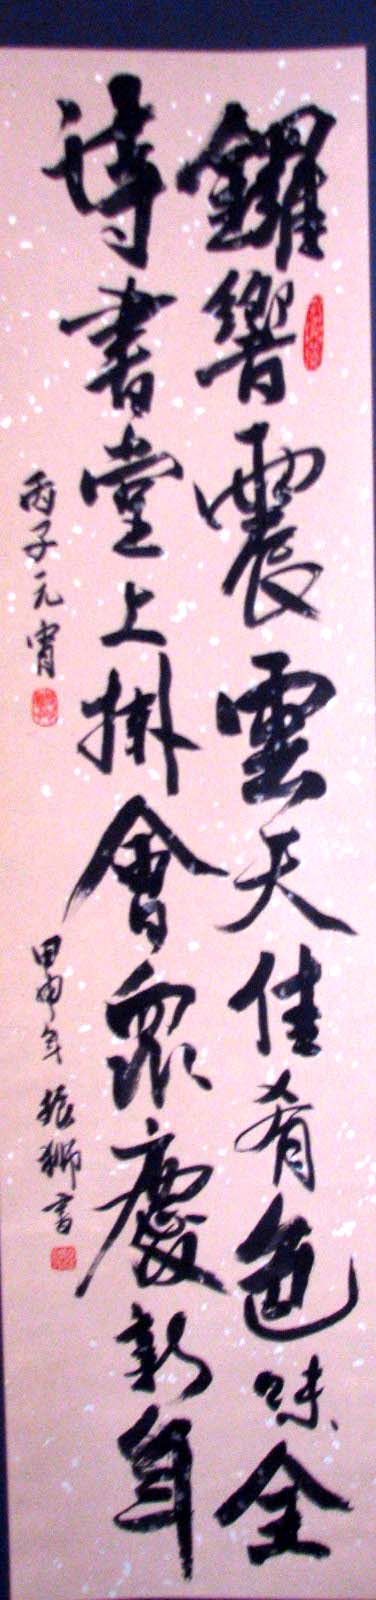 鑼響震雲天佳肴色味全
詩書堂上掛會眾慶新年
丙子元宵
甲申年 猿獅書